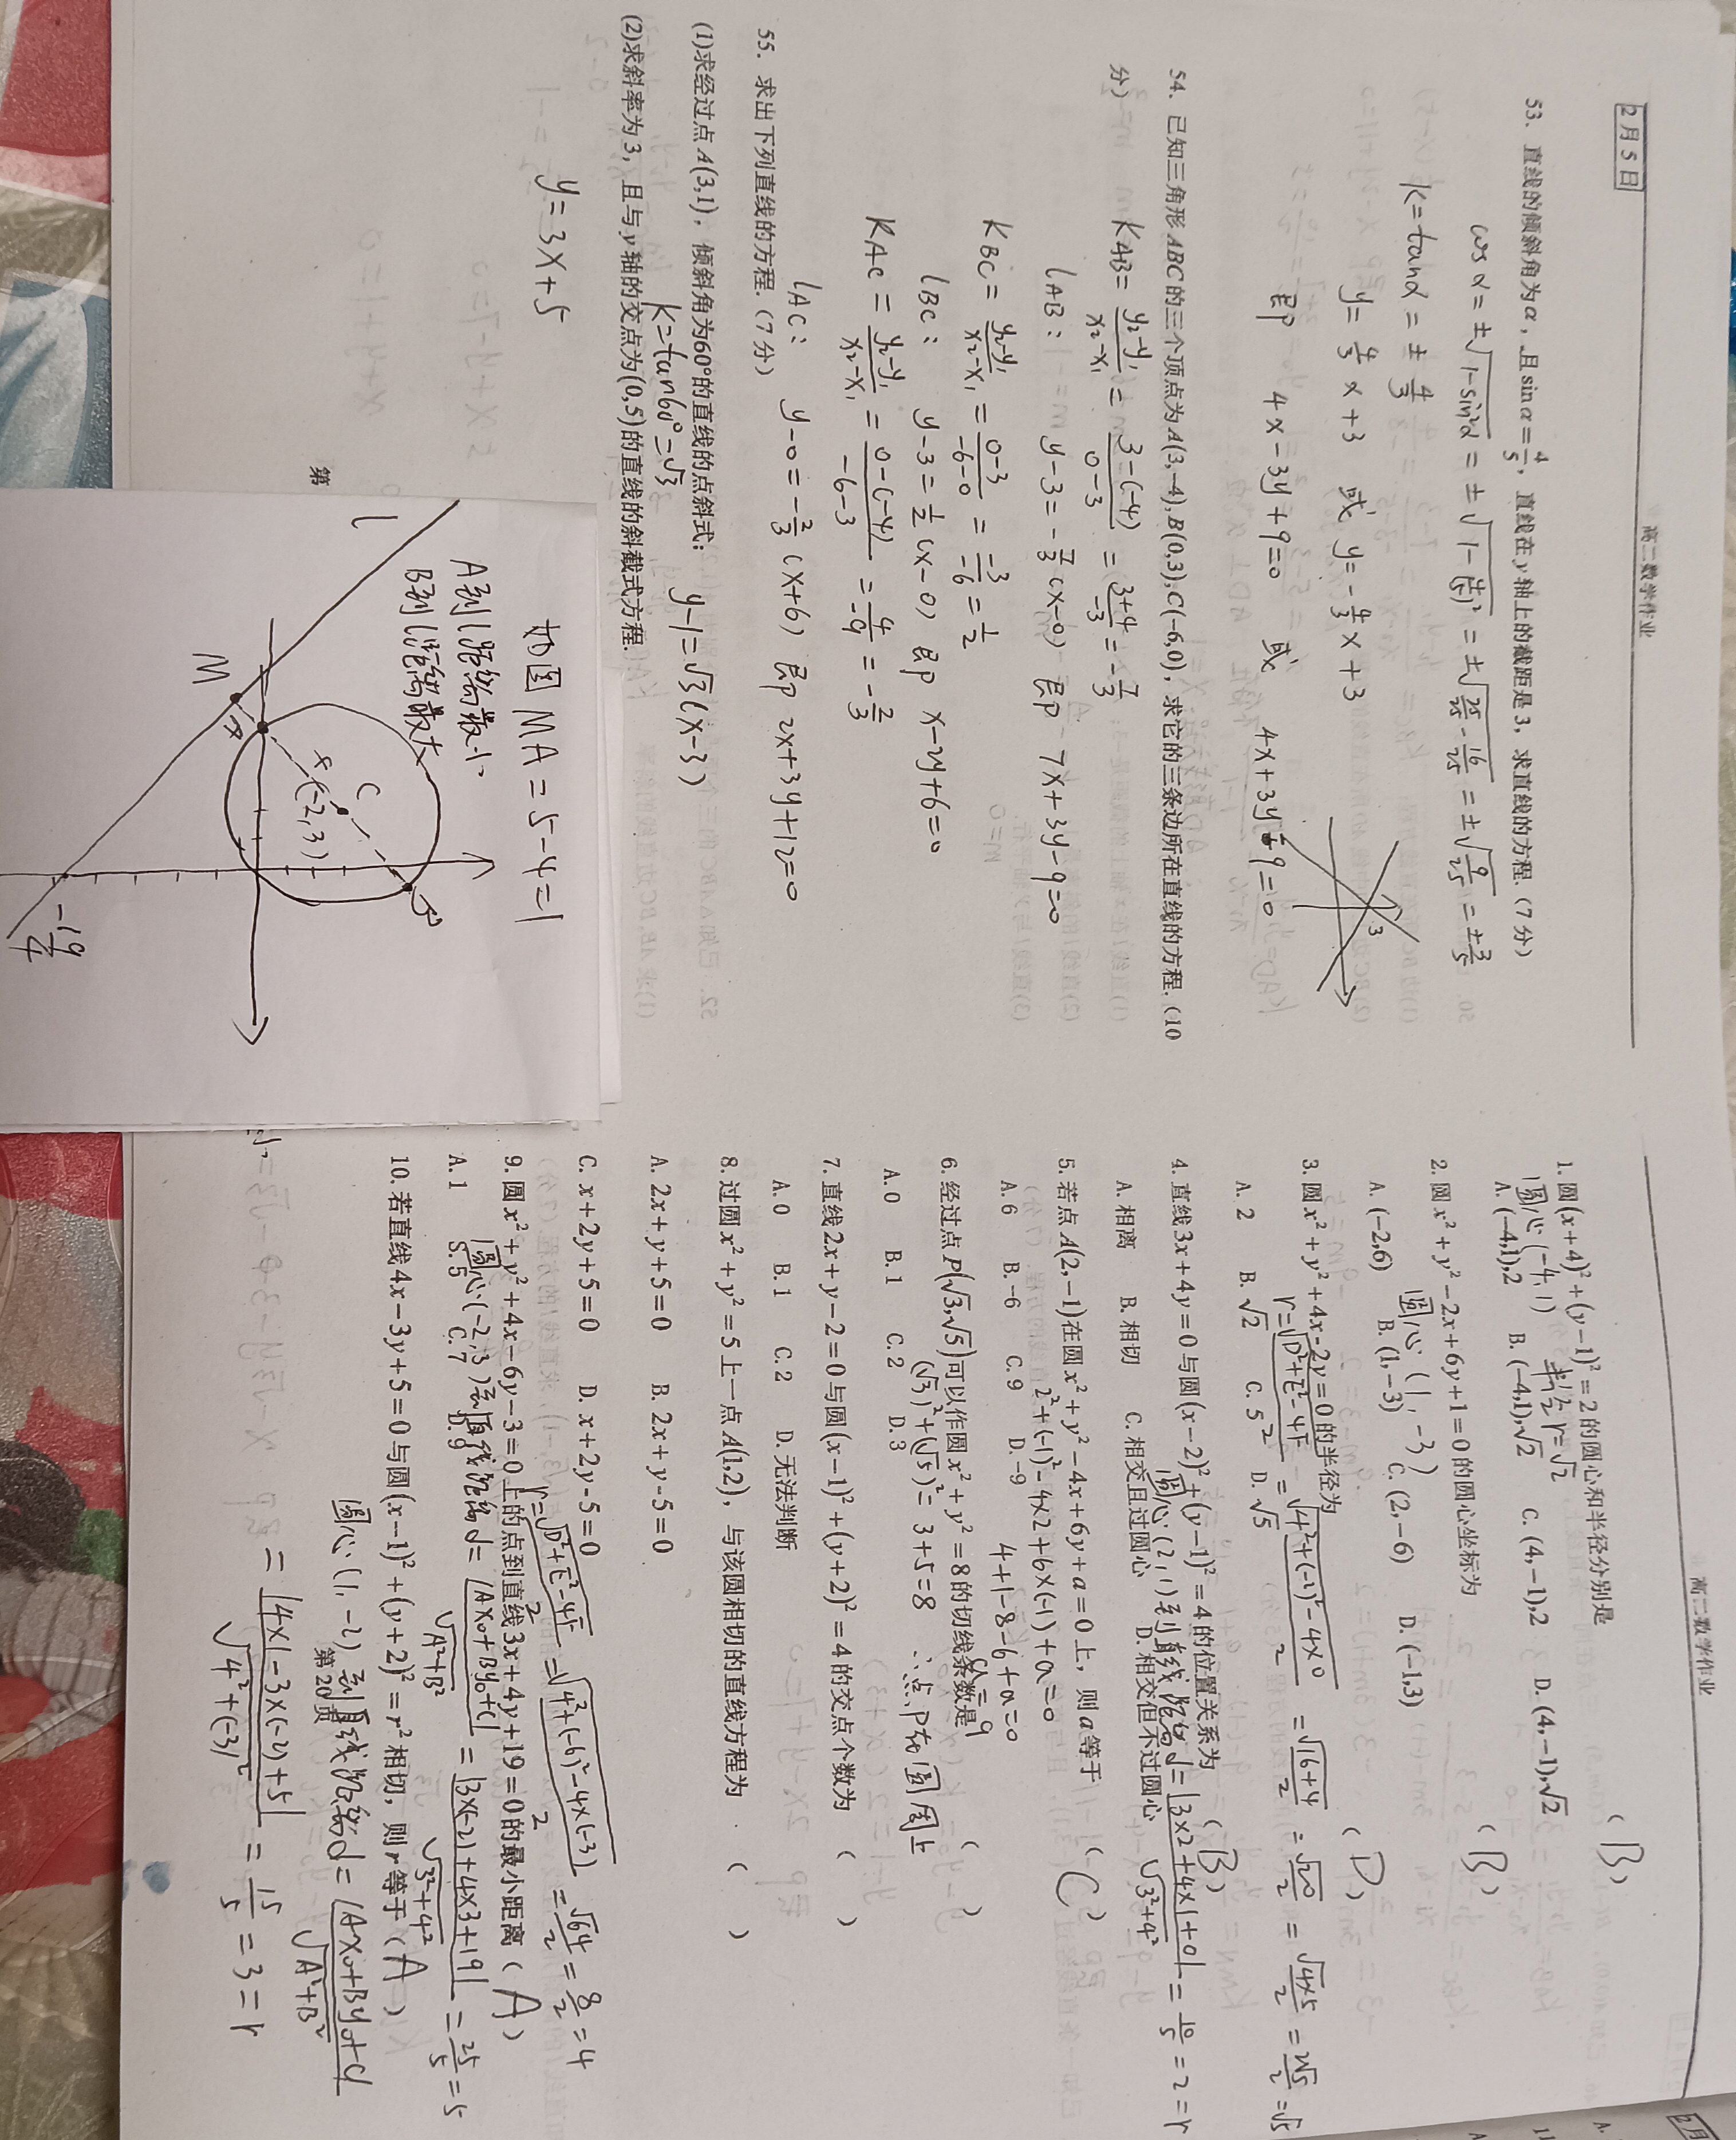 高二数学作业
2月5日
53、直线的倾斜角为α，且sinα=4/5，直线在y轴上的截距是3，求直线的方程.（7分）
cosα=±√(1-sin²α)=±√(1-(4/5)²)=±√(25/25-16/25)=±√(9/25)=±3/5
k=tanα=±4/3
y=4/3x+3 或 y=-4/3x+3
即 4x-3y+9=0 或 4x+3y-9=0
3
54、已知三角形ABC的三个顶点为A(3,-4),B(0,3),C(-6,0)，求它的三条边所在直线的方程.（10
分）
KAB=(y₂-y₁)/(x₂-x₁)=(3-(-4))/(0-3)=(3+4)/(-3)=-7/3
lAB: y-3=-7/3(x-0) 即 7x+3y-9=0
KBC=(y₂-y₁)/(x₂-x₁)=(0-3)/(-6-0)=(-3)/(-6)=1/2
lBC: y-3=1/2(x-0) 即 x-2y+6=0
KAC=(y₂-y₁)/(x₂-x₁)=(0-(-4))/(-6-3)=4/(-9)=-2/3
lAC: y-0=-2/3(x+6) 即 2x+3y+12=0
55、求出下列直线的方程.（7分）
(1)求经过点A(3,1)，倾斜角为60°的直线的点斜式；
k=tan60°=√3 y-1=√3(x-3)
(2)求斜率为3，且与y轴的交点为(0,5)的直线的斜截式方程.
y=3x+5
第
如图 MA=5-4=1
A到l距离最小
B到l距离最大
l
M
A
C
(-2,3)
B
-19/4
高二数学作业
1.圆(x+4)²+(y-1)²=2的圆心和半径分别是 (B)
圆心(-4,1) 半径r=√2
A.(-4,1),2 B.(-4,1),√2 C.(4,-1),2 D.(4,-1),√2
2.圆x²+y²-2x+6y+1=0的圆心坐标为 (B)
圆心(1,-3)
A.(-2,6) B.(1,-3) C.(2,-6) D.(-1,3)
3.圆x²+y²+4x-2y=0的半径为 (D)
r=√(D²+E²-4F)/2=√(4²+(-2)²-4×0)/2=√(16+4)/2=√20/2=√(4×5)/2=2√5/2=√5
A.2 B.√2 C.5 D.√5
4.直线3x+4y=0与圆(x-2)²+(y-1)²=4的位置关系为 (B)
圆心(2,1)到直线距离d=|3×2+4×1+0|/√(3²+4²)=10/5=2=r
A.相离 B.相切 C.相交且过圆心 D.相交但不过圆心
5.若点A(2,-1)在圆x²+y²-4x+6y+a=0上，则a等于 (C)
2²+(-1)²-4×2+6×(-1)+a=0
A.6 B.-6 C.9 D.-9
4+1-8-6+a=0
a=9
6.经过点P(√3,√5)可以作圆x²+y²=8的切线条数是 ( )
(√3)²+(√5)²=3+5=8 ∴点P在圆周上
A.0 B.1 C.2 D.3
7.直线2x+y-2=0与圆(x-1)²+(y+2)²=4的交点个数为 ( )
A.0 B.1 C.2 D.无法判断
8.过圆x²+y²=5上一点A(1,2)，与该圆相切的直线方程为 ( )
A. 2x+y+5=0 B. 2x+y-5=0
C. x+2y+5=0 D. x+2y-5=0
r=√(D²+E²-4F)/2=√(4²+(-6)²-4×(-3))/2=√64/2=8/2=4
9.圆x²+y²+4x-6y-3=0上的点到直线3x+4y+19=0的最小距离 (A)
圆心(-2,3)到直线距离d=|Ax₀+By₀+C|/√(A²+B²)=|3×(-2)+4×3+19|/√(3²+4²)=25/5=5
A.1 S.5 C.7 D.9
10.若直线4x-3y+5=0与圆(x-1)²+(y+2)²=r²相切，则r等于 (A )
圆心(1,-2)到直线距离d=|Ax₀+By₀+C|/√(A²+B²)
第20页
=|4×1-3×(-2)+5|/√(4²+(-3)²)=15/5=3=r
2月